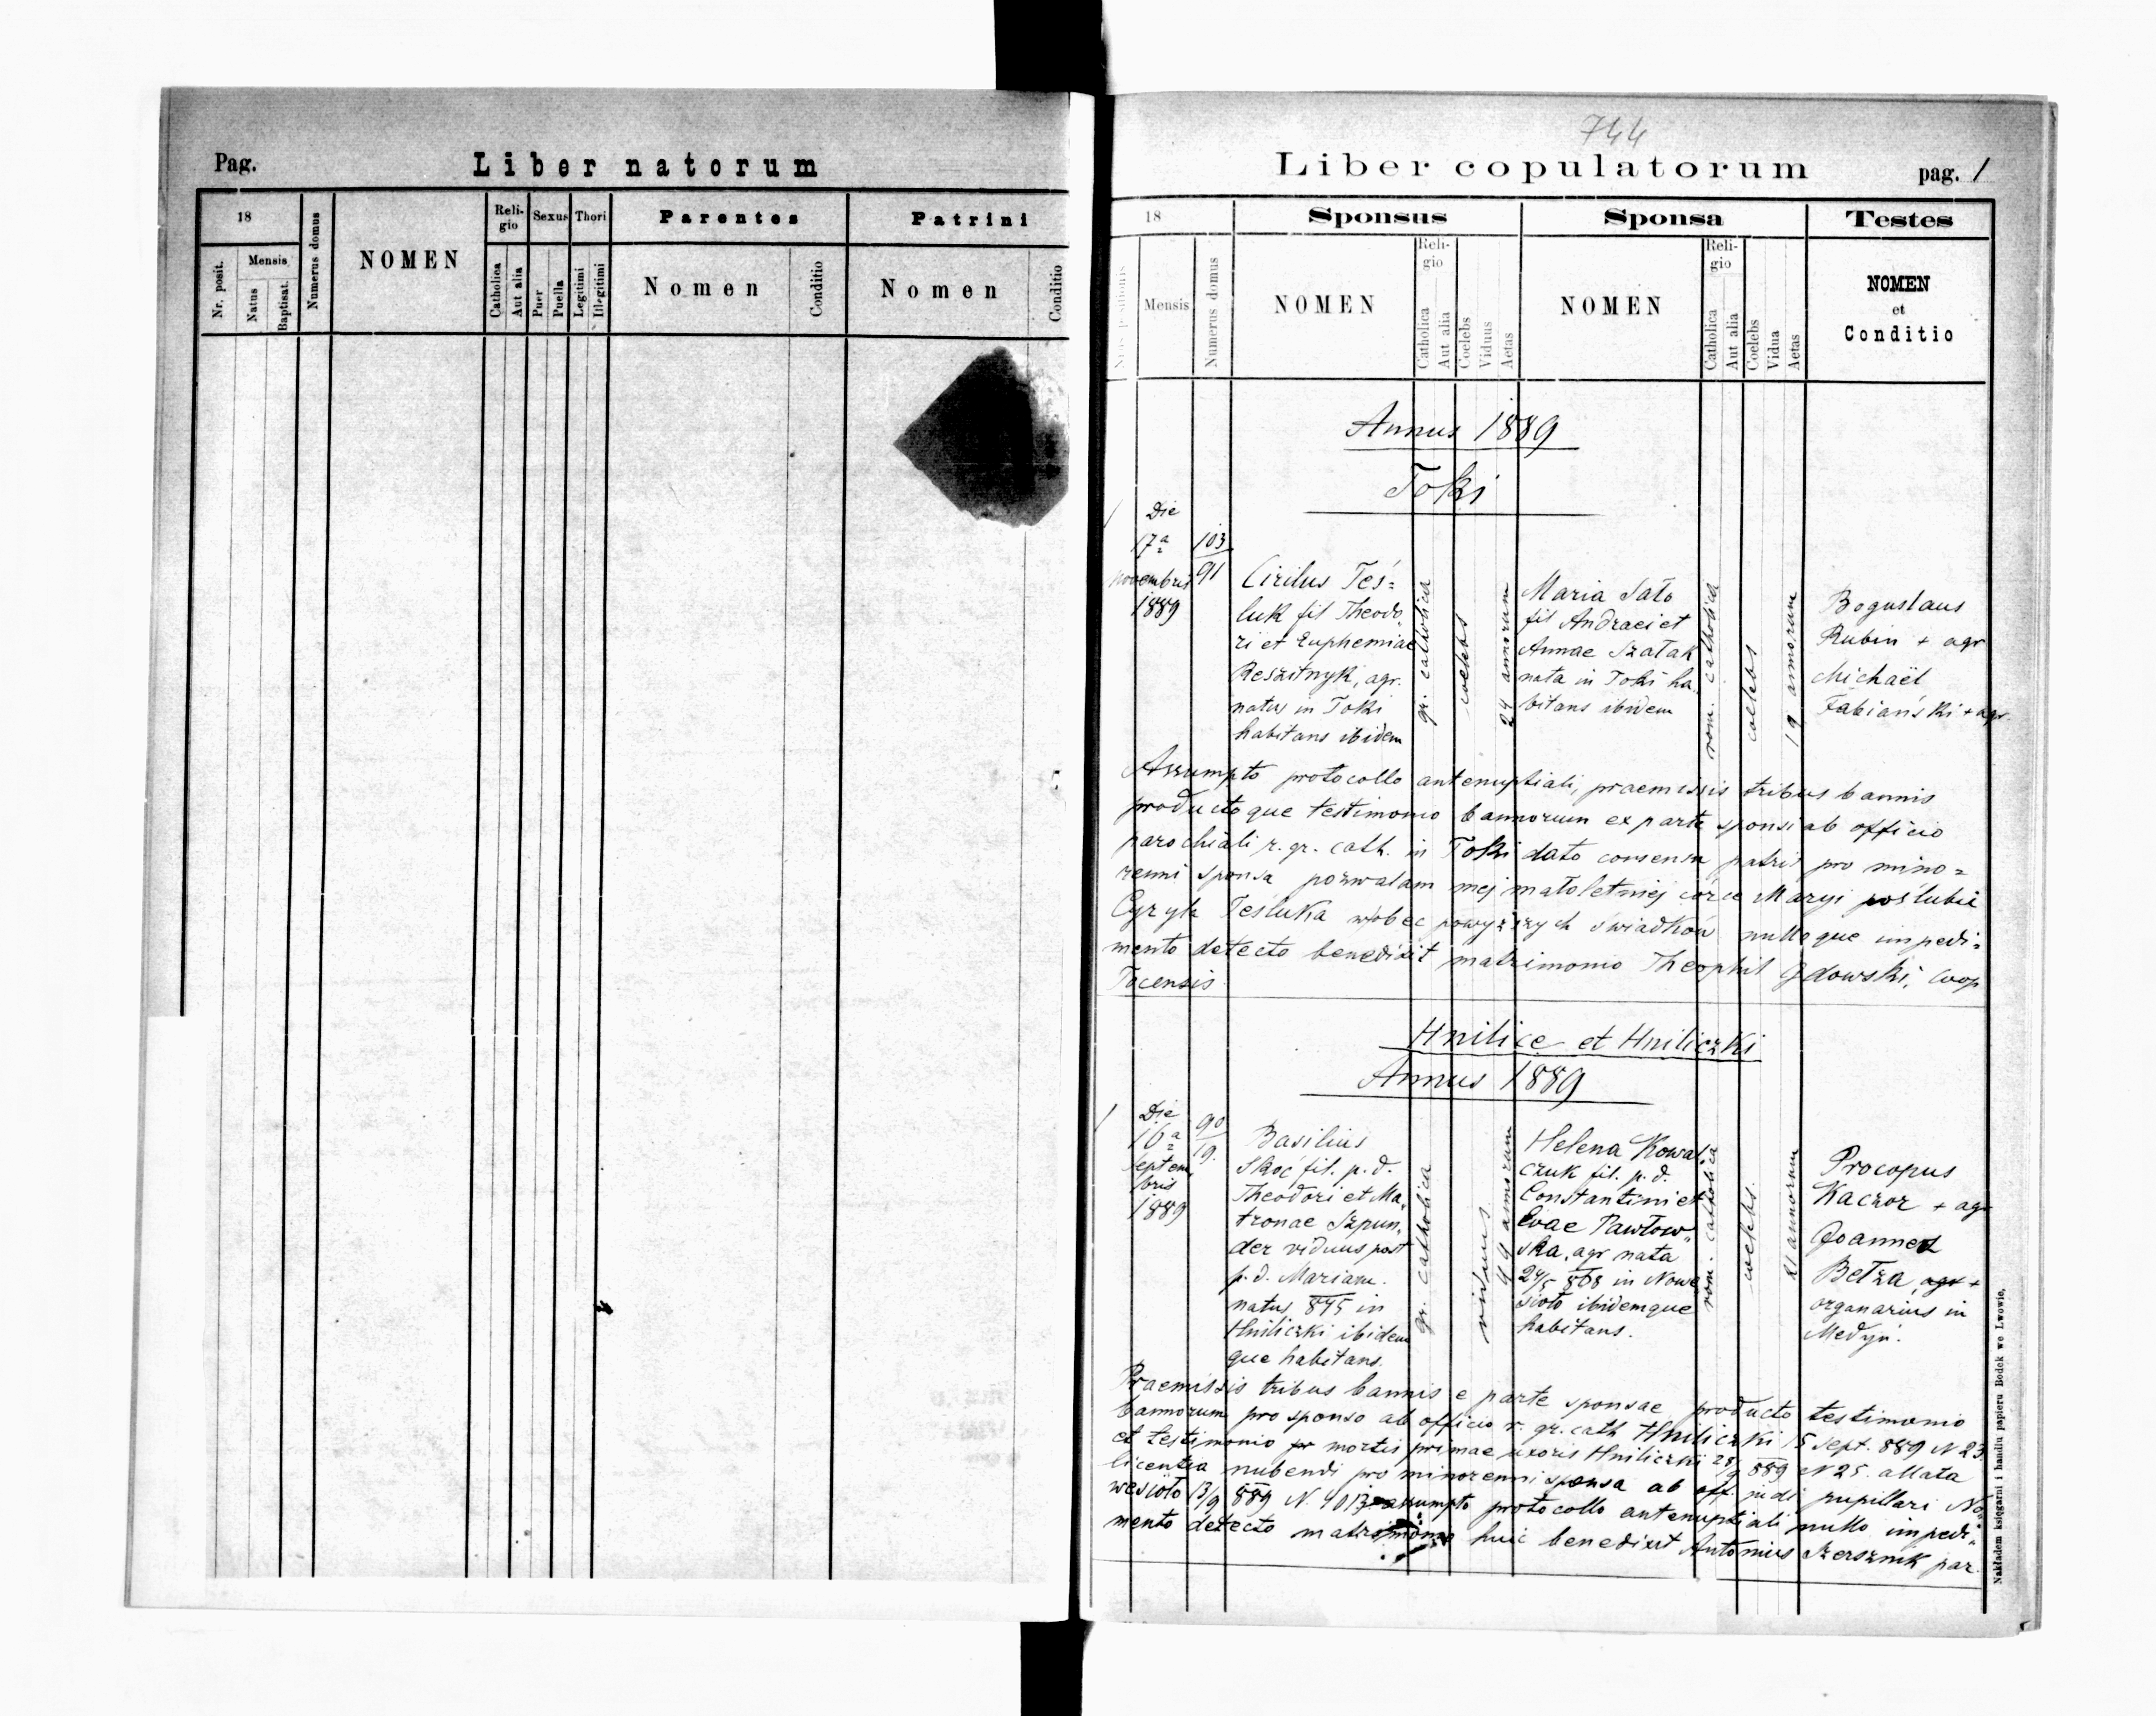 Pag.
Liber natorum
18
Nr. posit.
Mensis
Natus
Baptisat.
Numerus domus
NOMEN
Religio
Catholica
Aut alia
Sexus
Puer
Puella
Thori
Legitimi
Illegitimi
Parentes
Nomen
Conditio
Patrini
Nomen
Conditio
744
Liber copulatorum
pag. 1
18
Mensis
Numerus domus
Sponsus
NOMEN
Reli-
gio
Catholica
Aut alia
Coelebs
Viduus
Aetas
Sponsa
NOMEN
Reli-
gio
Catholica
Aut alia
Coelebs
Vidua
Aetas
Testes
NOMEN
et
Conditio
Annus 1889
Toki
1
Die
17a
novembris
1889
103
91
Cirilus Teś=
luk fil Theodo
ri et Euphemiae
Reszitnyk, agr.
natus in Toki
habitans ibidem
gr. catholica
coelebs
24 annorum
Maria Sato
fil Andraei et
Annae Szatak
nata in Toki ha
bitans ibidem
rom. catholica
coelebs
19 annorum
Boguslaus
Rubin + agr
Michaël
Fabiański + agr.
Assumpto protocollo antenuptiali, praemissis tribus bannis
productoque testimonio bannorum ex parte sponsi ab officio
parochiali r. gr. cath. in Toki dato consensu patris pro mino=
renni sponsa pozwalam mej małoletniej córce Maryi poślubić
Cyryla Tesluka wobec powyższych świadków nulloque impedi=
mento detecto benedixit matrimonio Theophil Gdowski, Coop
Tocensis
Hnilice et Hniliczki
Annus 1889
1
Die
16a
Septem
bris
1889
90
19.
Basilius
Skoć fil. p. d.
Theodori et Ma
tronae Szpun
der viduus post
p. d. Mariam.
natus 845 in
Hniliczki ibidem
que habitans.
gr. catholica
viduus
44 annorum
Helena Kowal
czuk fil. p. d.
Constantini et
Evae Pawłow
ska, agr nata
24/5 868 in Nowe
sioło ibidemque
habitans.
rom. catholica
coelebs.
21 annorum
Procopus
Kaczor + agr
Joannes
Bełza, agr +
organarius in
Medyń.
Praemissis tribus bannis e parte sponsae, producto testimonio
bannorum pro sponso ab officio r. gr. cath Hniliczki 15 sept. 889 N 23
et testimonio pr mortis primae uxoris Hniliczki 889 N 25. allata
licentia nubendi pro minorenni sponsa ab off. judi pupillari No
wesioło 13/9 889 N. 4013 assumpto protocollo antenuptiali nullo impedi
mento detecto matrimonio huic benedixit Antonius Szersznik par.
Nakładem księgarni i handlu papieru Bodek we Lwowie.